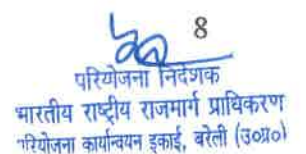 8
परियोजना निदेशक
भारतीय राष्ट्रीय राजमार्ग प्राधिकरण
परियोजना कार्यान्वयन इकाई, बरेली (उ०प्र०)